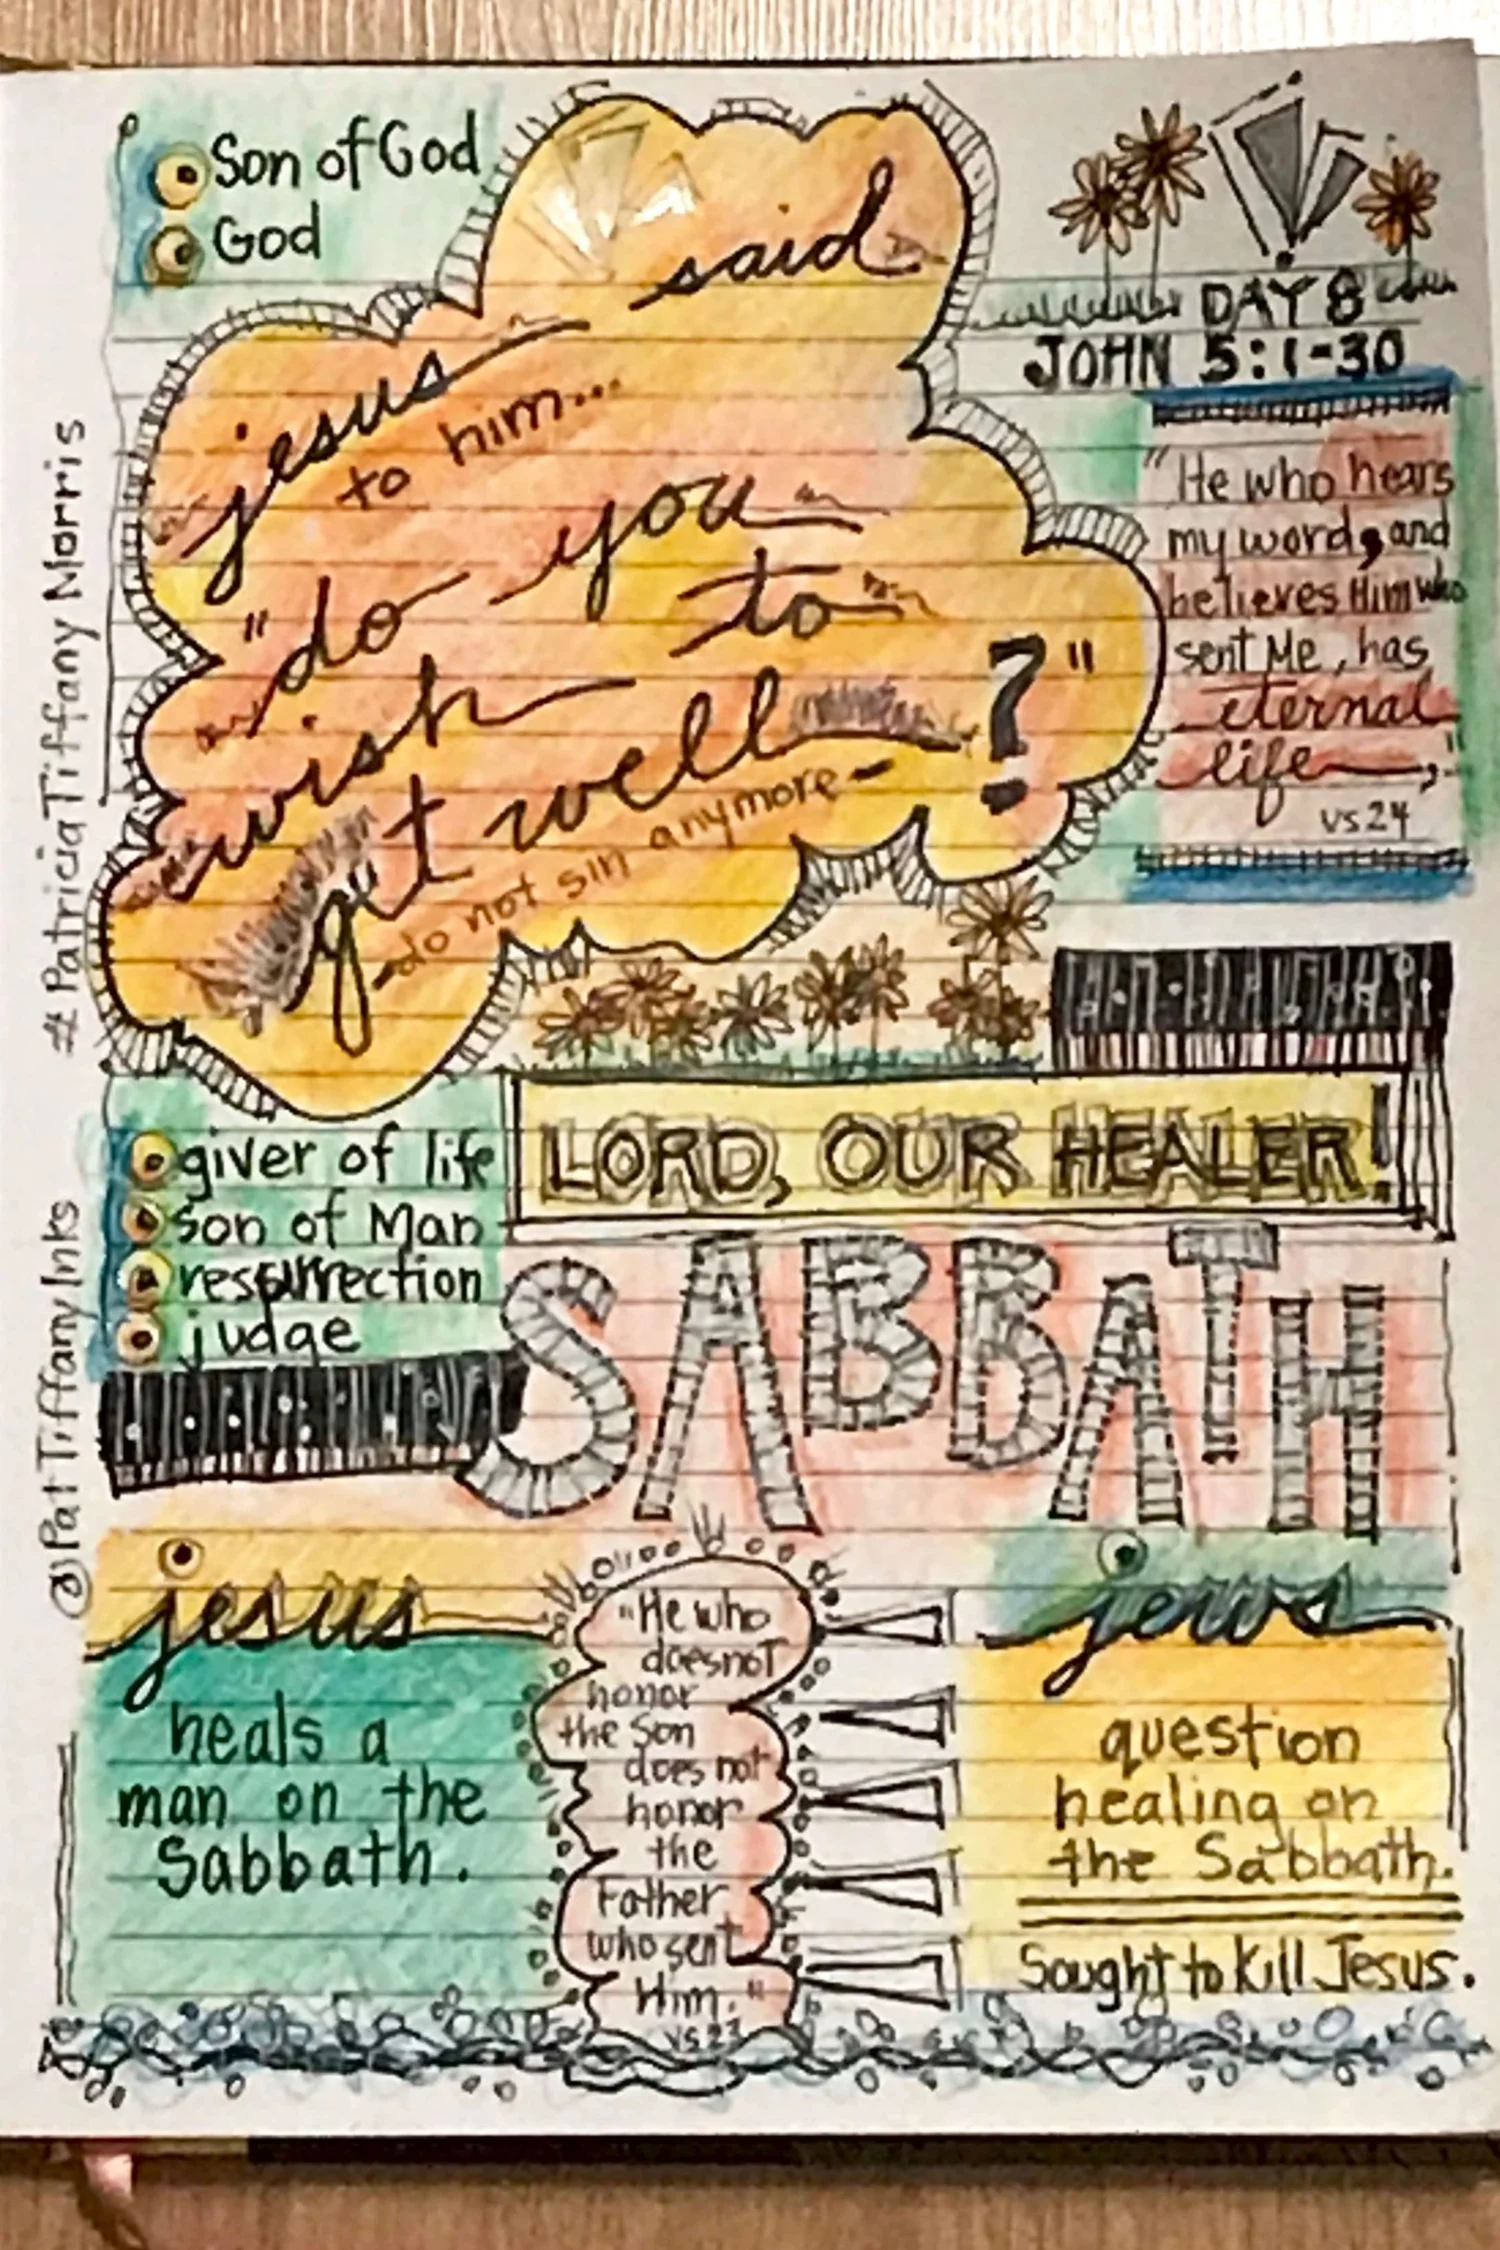 Son of God
God
jesus said
to him...
"do you
wish to
get well?"
-do not sin anymore-
DAY 8
JOHN 5:1-30
"He who hears
my word, and
believes Him who
sent Me, has
eternal
life,"
vs 24
# Patricia Tiffany Morris
@Pat Tiffany Inks
giver of life
son of Man
resurrection
judge
LORD, OUR HEALER!
SABBATH
jesus
heals a
man on the
Sabbath.
"He who
does not
honor
the Son
does not
honor
the
Father
who sent
Him."
vs 23
jews
question
healing on
the Sabbath.
Sought to kill Jesus.